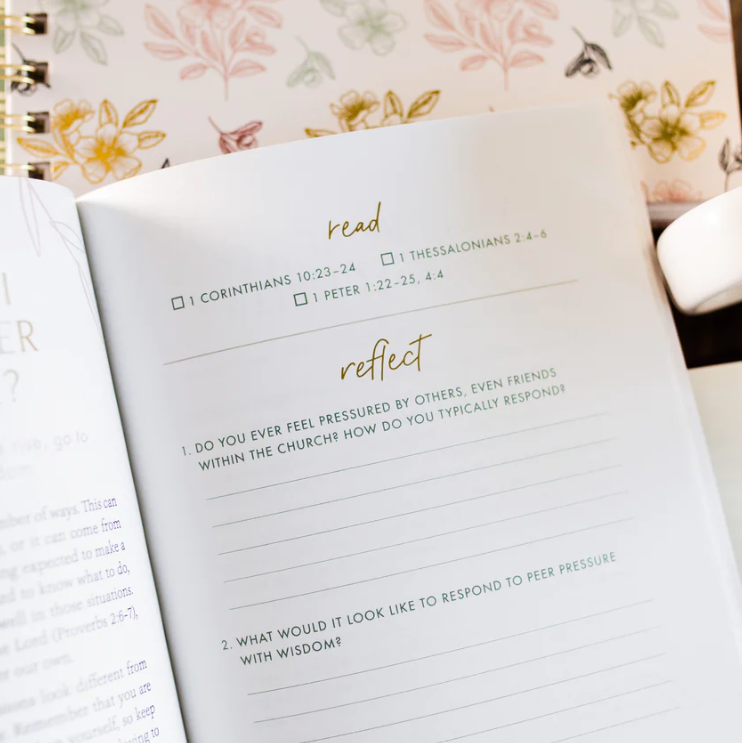 I
ER
?
go to
mber of ways. This can
or it can come from
ng expected to make a
ed to know what to do,
well in those situations.
e Lord (Proverbs 2:6-7),
our own.
look different from
Remember that you are
yourself, so keep
to
read
1 CORINTHIANS 10:23–24
1 THESSALONIANS 2:4–6
1 PETER 1:22–25, 4:4
reflect
1. DO YOU EVER FEEL PRESSURED BY OTHERS, EVEN FRIENDS
WITHIN THE CHURCH? HOW DO YOU TYPICALLY RESPOND?
2. WHAT WOULD IT LOOK LIKE TO RESPOND TO PEER PRESSURE
WITH WISDOM?